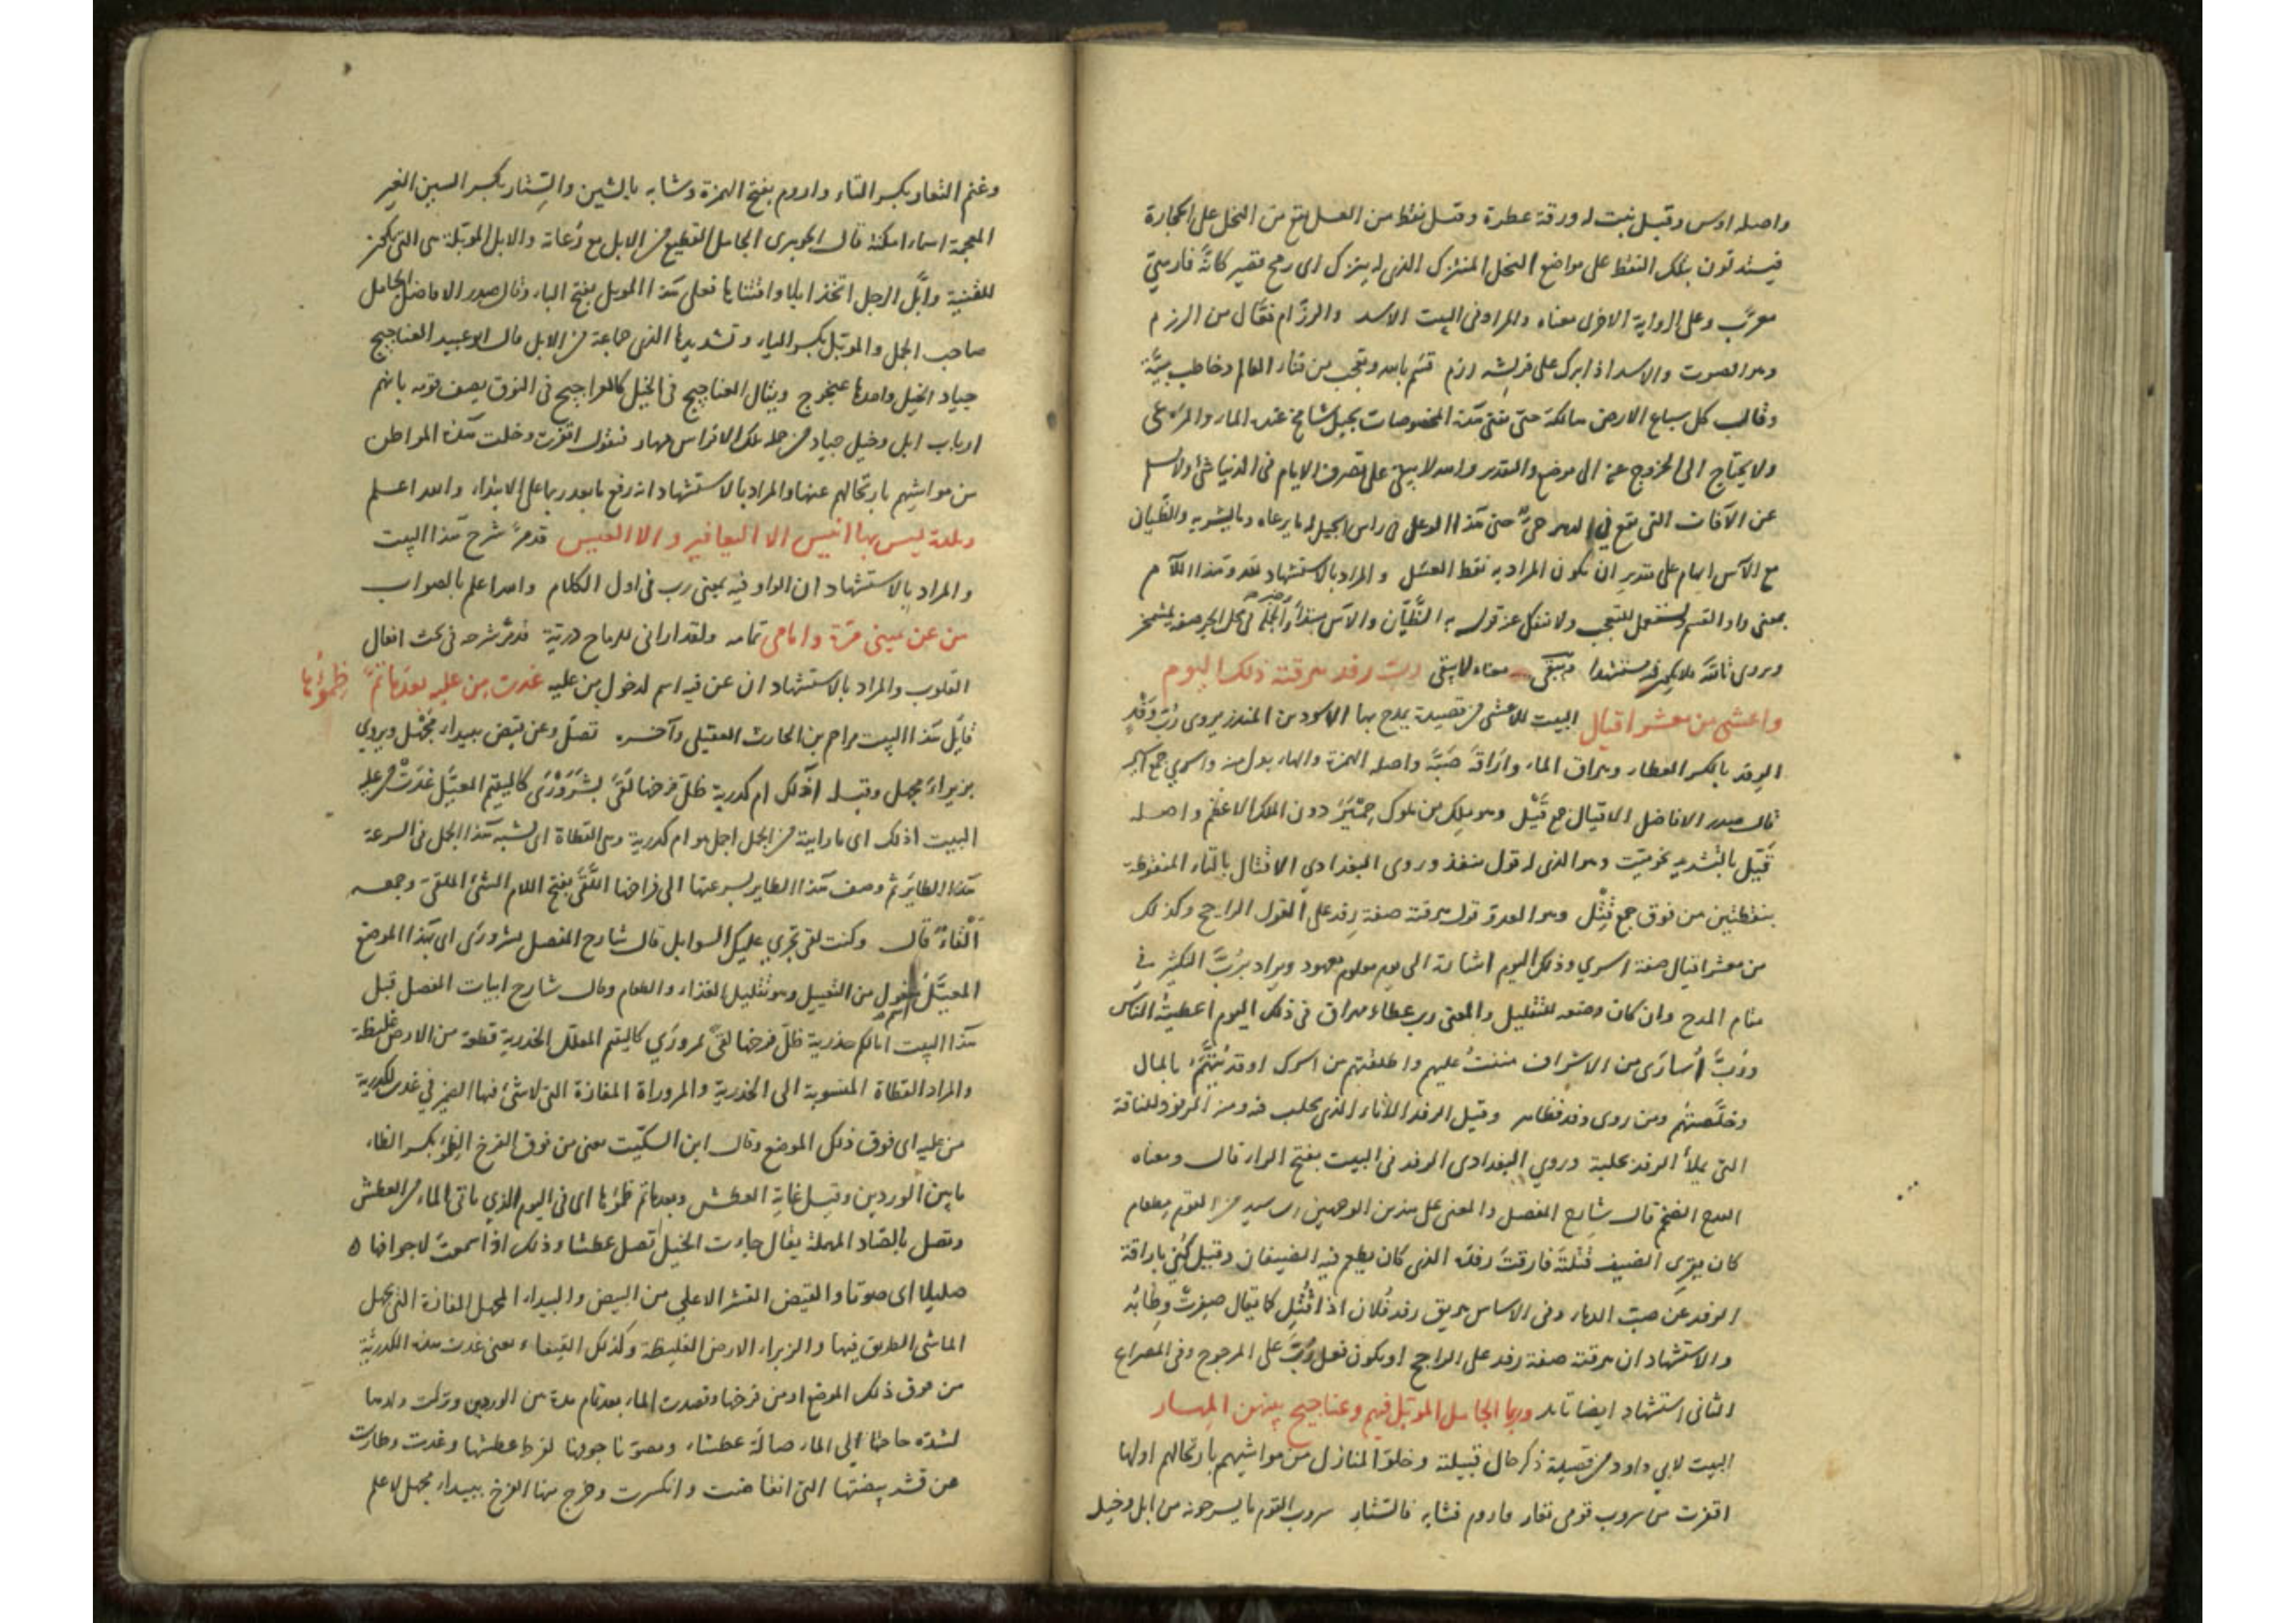 واصله اوس وقيل نبت له ورقة عطرة وقيل نقط من العسل تقع من النحل على الحجارة
فيستدلون بتلك النقط على مواضع النحل المنيزك الذي له نيزك اى رمح قصير كانه فارسي
معرب وعلى الرواية الاخرى معناه والمراد فى البيت الاسد والرزام فعال من الرزم
وهو الصوت والاسد اذا برك على فريسته رزم قسم بالله وتعجب من فناء العالم وخاطب ميّة
وقال كل سباع الارض هالكة حتى تفنى هذه المخصوصات بجبل شامخ عنده الماء والمرعى
ولا يحتاج الى الخروج عنه الى موضع والتقدير والله لا يبقى على تصرف الايام فى الدنيا شئ ولا يسلم
عن الآفات التى تقع فى الدهر حىّ حتى هذا الوعل فى راس الجبل له ما يرعاه وما يشربه والظيان
مع الآس ايهام على تقدير ان يكون المراد به نقط العسل والمراد بالاستشهاد هذا اللام
بمعنى واو القسم المستعمل للتعجب قوله به الظيّان والآس مبتدأ والجملة فى محل الجر صفة لمشمخر
ويروى تالله معناه لا يبقى رب رفد هرقته ذلك اليوم
واعشى من معشر اقيال البيت للاعشى من قصيدة يمدح بها الاسود بن المنذر يروى رُبّ وَفْدٍ
الرفد بالكسر العطاء وهراق الماء واَرَاقَهُ صَبَّهُ واصله الهمزة والهاء بدل منه واسرى جمع اسير
قال صدر الافاضل الاقيال جمع قَيْل وهو ملك من ملوك حِمْيَر دون الملك الاعظم واصله
قَيِّل بالتشديد نحو ميّت وهو الذى له قول منفذ وروى البغدادى الاقتال بالتاء المنقوطة
بنقطتين من فوق جمع قِتْل وهو العدو قوله هرقته صفة رفد على القول الراجح وكذلك
من معشر اقيال صفة اسرى وذلك اليوم اشارة الى يوم معلوم معهود ويراد برُبّ التكثير فى
مقام المدح وان كان وضعه للتقليل والمعنى رب عطاء مهراق فى ذلك اليوم اعطيته الناس
ورُبَّ اُسارَى من الاشراف مننتُ عليهم واطلقتهم من اسرك او فديتهم بالمال
وخلّصتهم ومن روى وفد فظاهر وقيل الرفد الاناء الذى يحلب فيه ومنه الرفود للناقة
التى يملأ الرفد بحلبة وروى البغدادى الرفد فى البيت بفتح الراء قال ومعناه
القدح الضخم قال شارح المفصل والمعنى على هذين الوجهين رب سيد من القوم مطعام
كان يقرى الضيف قتلتَه فارقتَ رفده الذى كان يطعم فيه الضيفان وقيل كُنِيَ باراقة
الرفد عن صبّ الدماء وفى الاساس هريق رفد فُلان اذا قُتِل كما يقال صفِرتْ وِطابُه
والاستشهاد ان هرقته صفة رفد على الراجح او يكون فعل رُبّ على المرجوح وفى المصراع
الثانى استشهاد ايضا تأمله ربما الجامل الموبّل فيهم وعناجيج بينهن المهار
البيت لابي داود من قصيدة ذكر حال قبيلته وخلوّ المنازل من مواشيهم بارتحالهم اولها
اقفرت من سروب قومى تعار فاروم فشابه فالستار سروب القوم ما يسرحونه من ابل وخيل
وغنم التعار بكسر التاء واروم بفتح الهمزة وشابه بالشين والستار بكسر السين الغير
المعجمة اسماء امكنة قال الجوهرى الجامل القطيع من الابل مع رُعاته والابل الموبّلة هى التى تكون
للقنية وابّل الرجل اتخذ ابلا واقتناها فعلى هذا الموبل بفتح الباء وقال صدر الافاضل الجامل
صاحب الجمل والموبّل بكسر الباء وتشديدها الذى جماعة من الابل قال ابو عبيد العناجيج
جياد الخيل واحدها عنجوج ويقال العناجيج فى الخيل كالعراجيج فى النوق يصف قومه بانهم
ارباب ابل وخيل جياد من جملة تلك الافراس مهار فيقول اقفرت وخلت هذه المواطن
من مواشيهم بارتحالهم عنها والمراد بالاستشهاد انه رفع ما بعد ربما على الابتداء والله اعلم
وبلدة ليس بها انيس الا اليعافير والا العيس قد مرّ شرح هذا البيت
والمراد بالاستشهاد ان الواو فيه بمعنى رب فى اول الكلام والله اعلم بالصواب
من عن يمينى مرّة وامامى تمامه ولقد ارانى للرماح دريّة قد مرّ شرحه فى بحث افعال
القلوب والمراد بالاستشهاد ان عن فيه اسم لدخول من عليه غدت من عليه بعد ما تمّ ظِمْؤُها
قائل هذا البيت مزاحم بن الحارث العقيلى وآخره تصلّ وعن قيض ببيداء مَجْهَل ويروى
بزيزاءَ مجهل وقبله اذلك ام كدرية ظلّ فرخها لَقًى بشَرَوْرَى كاليتيم المعيَّل غدَتْ من عليه
البيت اذلك اى ما رايته من الجمل اجمل هو ام كدرية وهى القطاة اى اشبه هذا الجمل فى السرعة
هذا الطاير ثم وصف هذا الطاير بسرعتها الى فراخها اللَّقَى بفتح اللام الشئ الملقى وجمعه
اَلْقاءٌ قال وكنت لقى تجرى عليك السوابل قال شارح المفصل بشرورى اى بهذا الموضع
المعيَّل مفعول من التعييل وهو تقليل الغذاء والطعام وقال شارح ابيات المفصل قبل
هذا البيت ام حذرية ظلّ فرخها لقىً بمروْرَى كاليتيم المعلل الحذرية قطعة من الارض غليظة
والمراد القطاة المنسوبة الى الحذرية والمروراة المفازة التى لا شئ فيها الضمير فى غدت للكدرية
من عليه اى فوق ذلك الموضع وقال ابن السكّيت معنى من فوق الفرخ الظِمْؤ بكسر الظاء
ما بين الوردين وقيل غاية العطش وبعد ما تم ظمؤها اى فى اليوم الذى تاتى الماء من العطش
وتصل بالصّاد المهملة يقال جاءت الخيل تصل عطشا وذلك اذا سمعتَ لاجوافها
صليلا اى صوتا والقيض القشر الاعلى من البيض والبيداء المجهل المفازة التى يجهل
الماشى الطريق فيها والزيزاء الارض الغليظة وكذلك الفيفاء معنى غدت هذه الكدريّة
من فوق ذلك الموضع او من فرخها وقصدت الماء بعد تمام مدة من الوردين وتركت ولدها
لشدة حاجتها الى الماء صالّة عطشاء ومصوتا جوفها لفرط عطشها وغدت وطارت
عن قشر بيضتها التى انقاضت وانكسرت وخرج منها الفرخ ببيداء مجهل لا علم